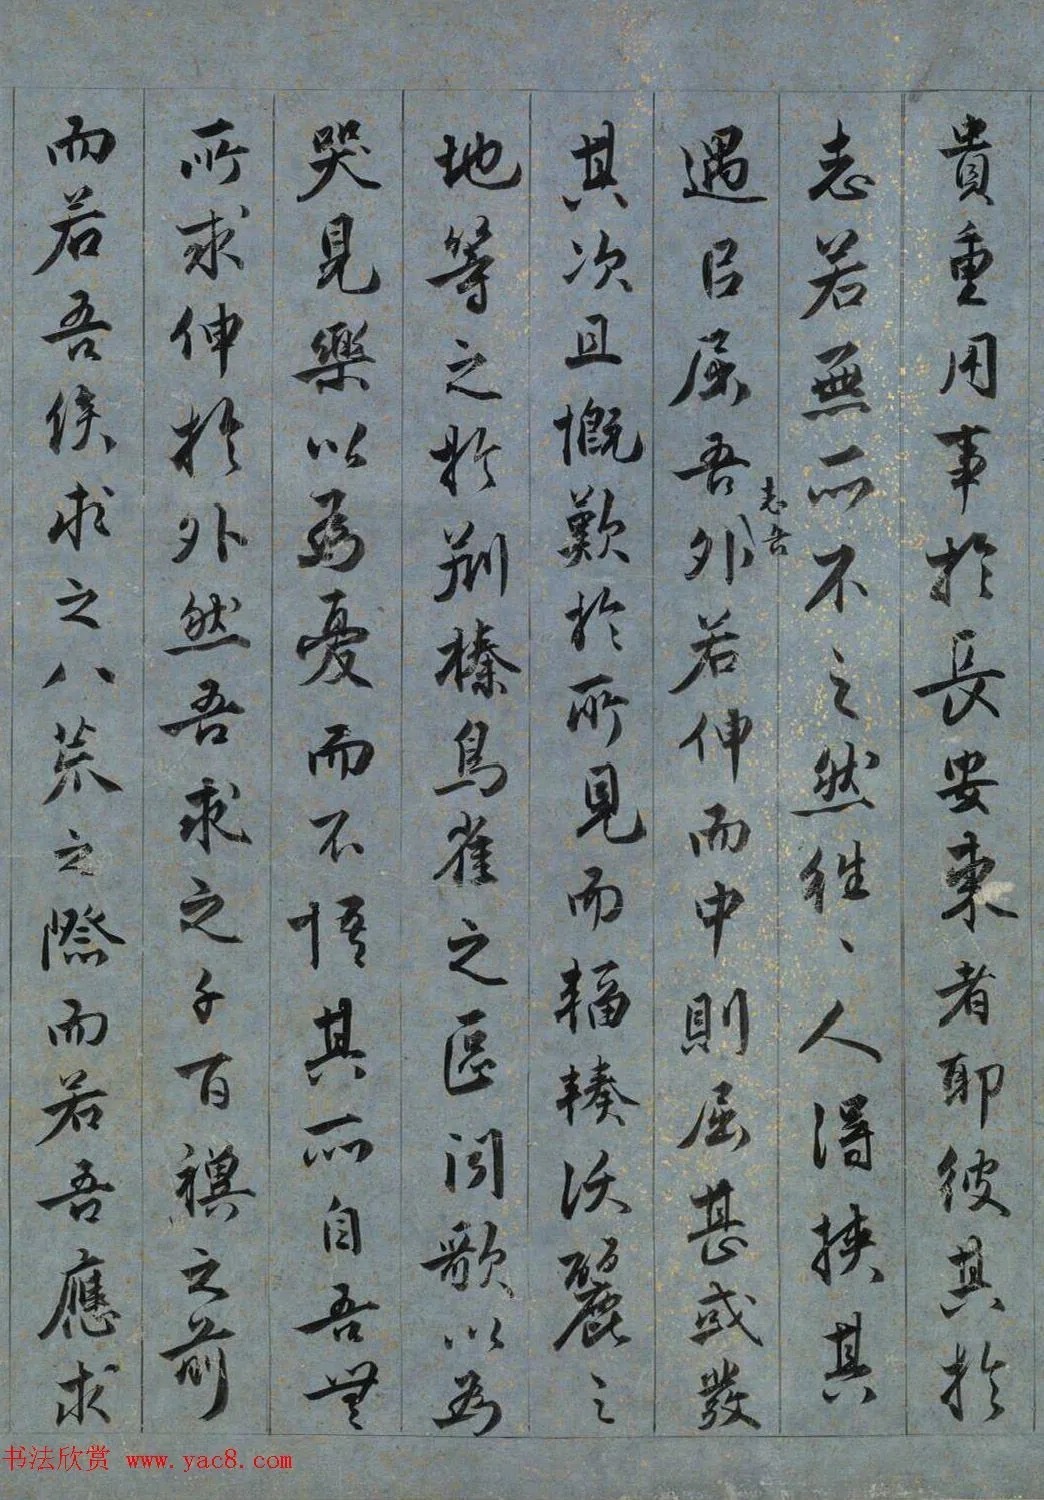 貴重用事於長安東者耶彼其於
志若無所不之然往、人得挾其
遇臣屈吾外若伸而中則屈甚或發
志吾
其次且慨歎於所見而輻輳沃麗之
地等之於荆榛鳥雀之區聞歌以為
哭見樂以為憂而不悟其所自吾無
所求伸於外然吾求之千百禩之前
而若吾俟求之八荒之際而若吾應求
书法欣赏 www.yac8.com